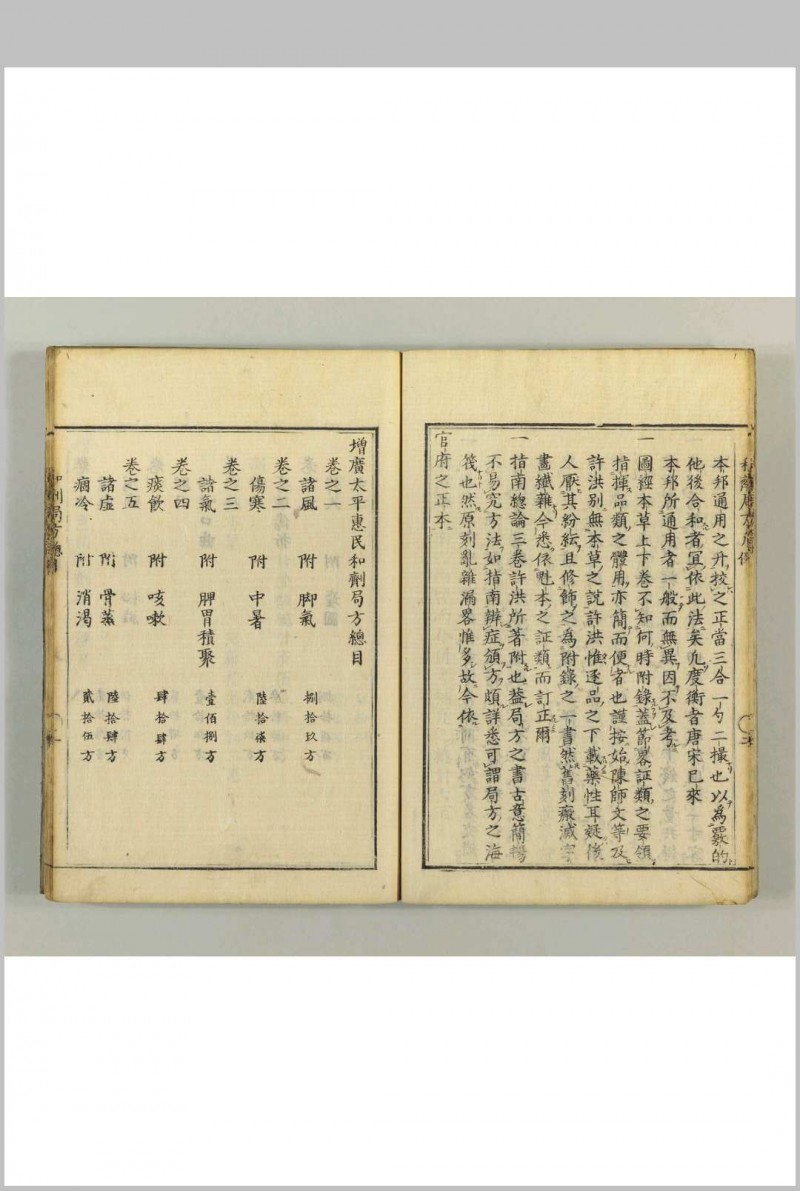 本邦通用之升挍之正當三合一勺二撮也以為覈的
他後合和者宜依此法矣凢度衡者唐宋已來
本邦所通用者一般而無異因不及考
一 圖經本草上下卷不知何時附錄蓋節畧証類之要領
指揮品類之體用亦簡而便者也謹按始陳師文等及
許洪別無本草之說許洪惟逐品之下載藥性耳疑後
人厭其粉紜且修飾之為附錄之一書然舊刻癈滅字
畫纎難今悉依甦本之証類而訂正爾
一 指南總論三卷許洪所著附也益局方之書古意簡
不易究方法如指南辨症頒方頗詳悉可謂局方之海
筏也然原刻亂雜漏畧惟多故今依
官府之正本
增廣太平惠民和劑局方總目
卷之一
諸風 附 脚氣 捌拾玖方
卷之二
傷寒 附 中暑 陸拾柒方
卷之三
諸氣 附 脾胃積聚 壹佰捌方
卷之四
痰飲 附 咳嗽 肆拾肆方
卷之五
諸虛 附 骨蒸 陸拾肆方
痼冷 附 消渴 貳拾伍方